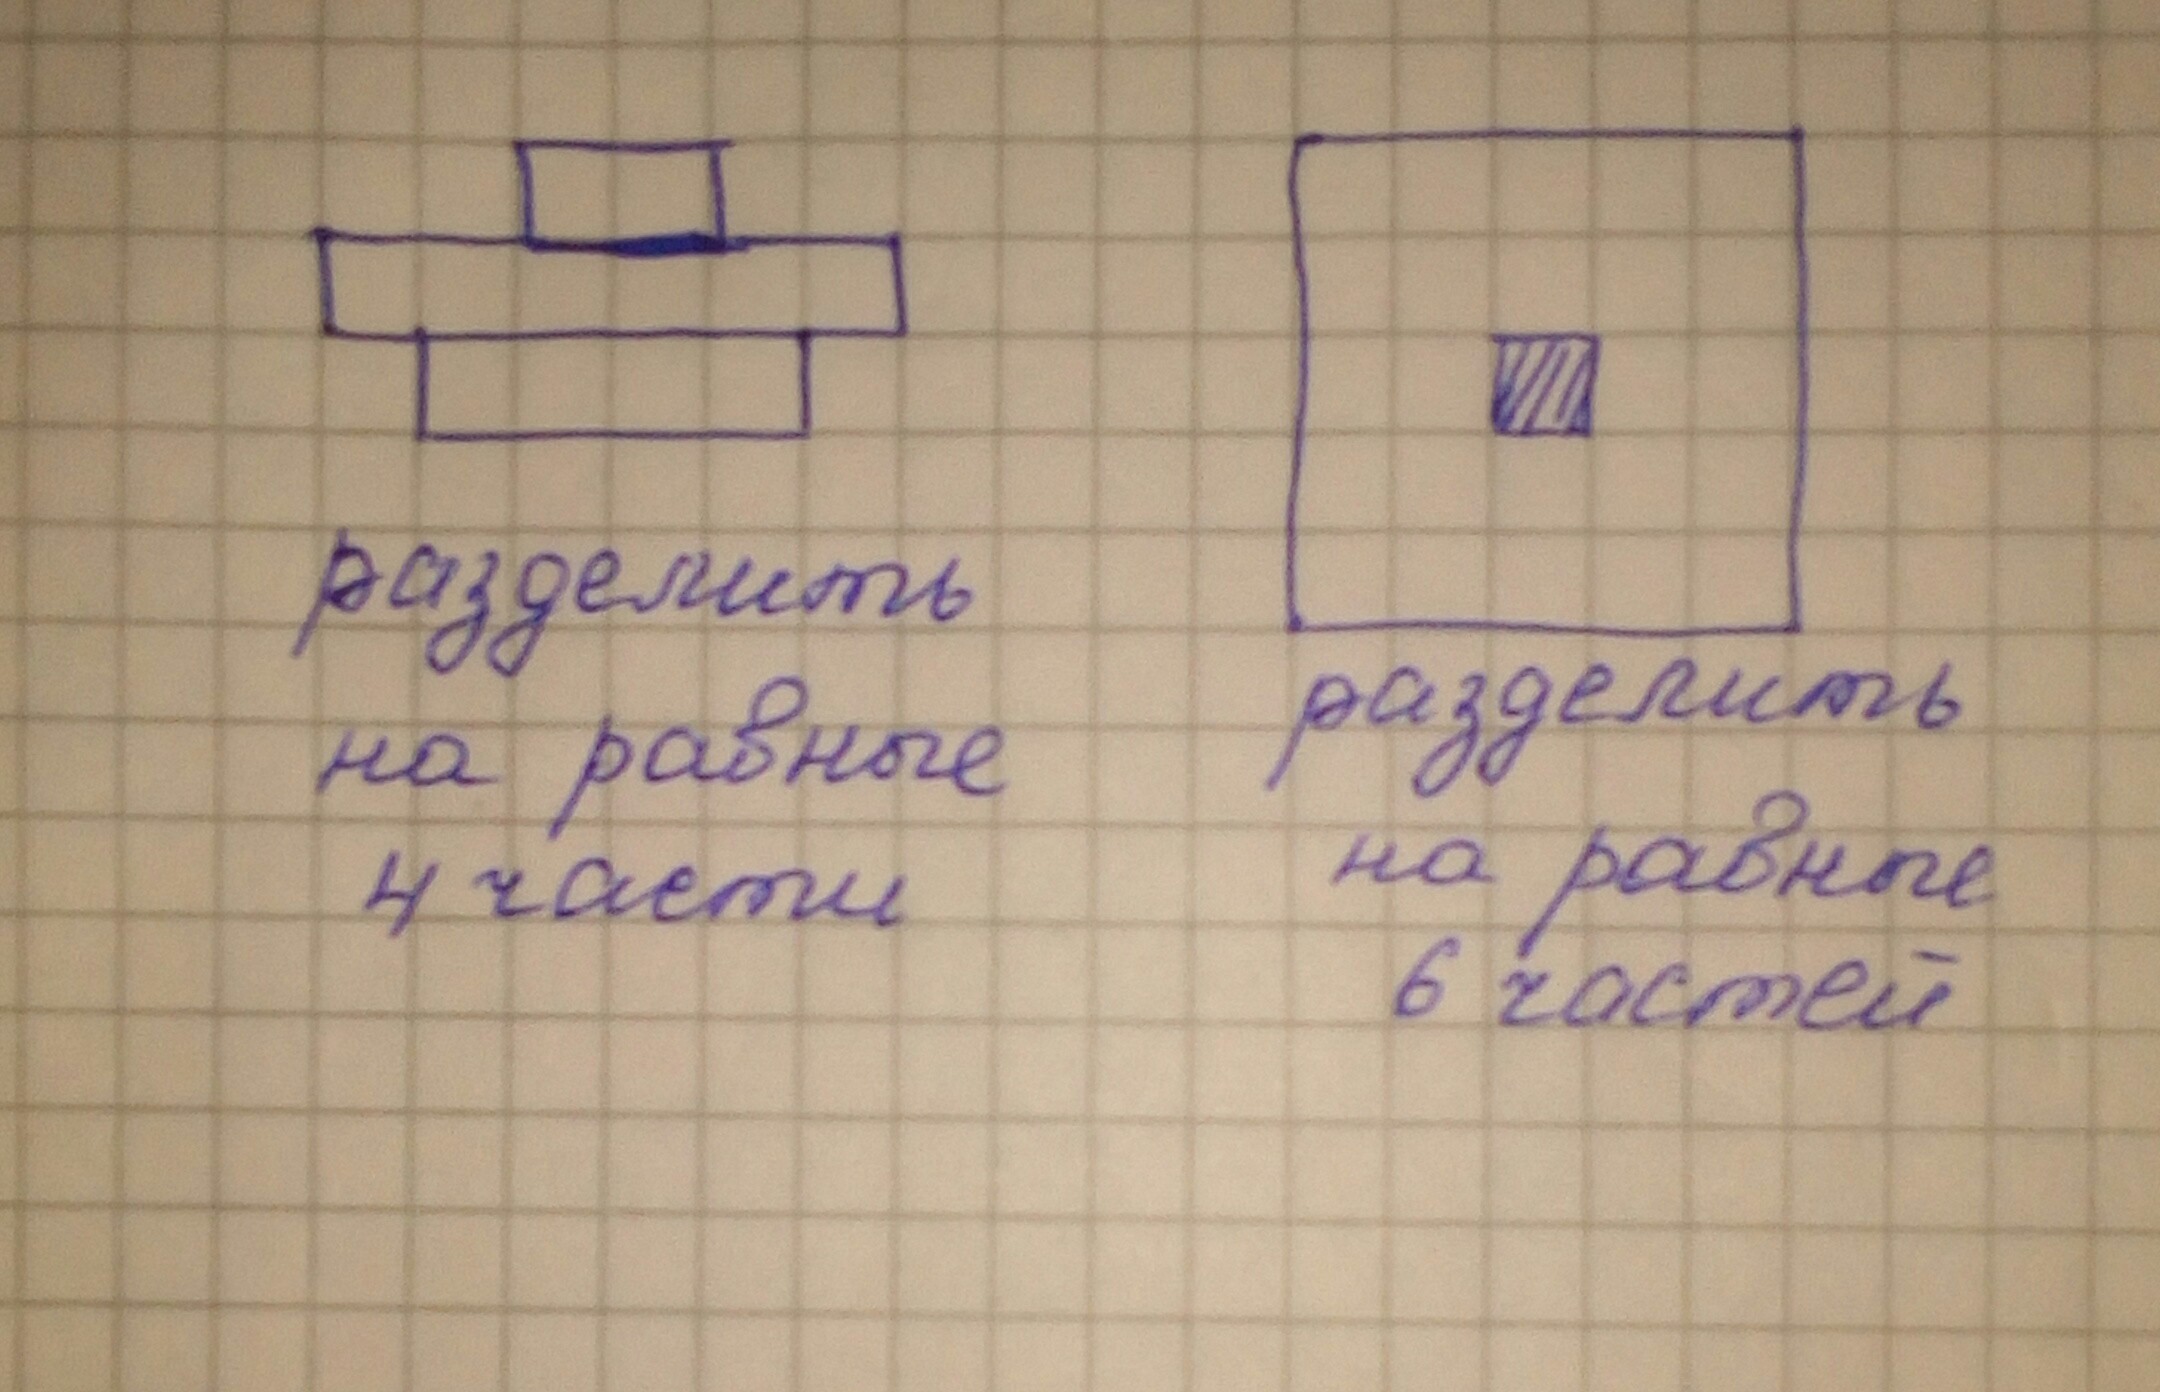 разделить
на равные
4 части
разделить
на равные
6 частей